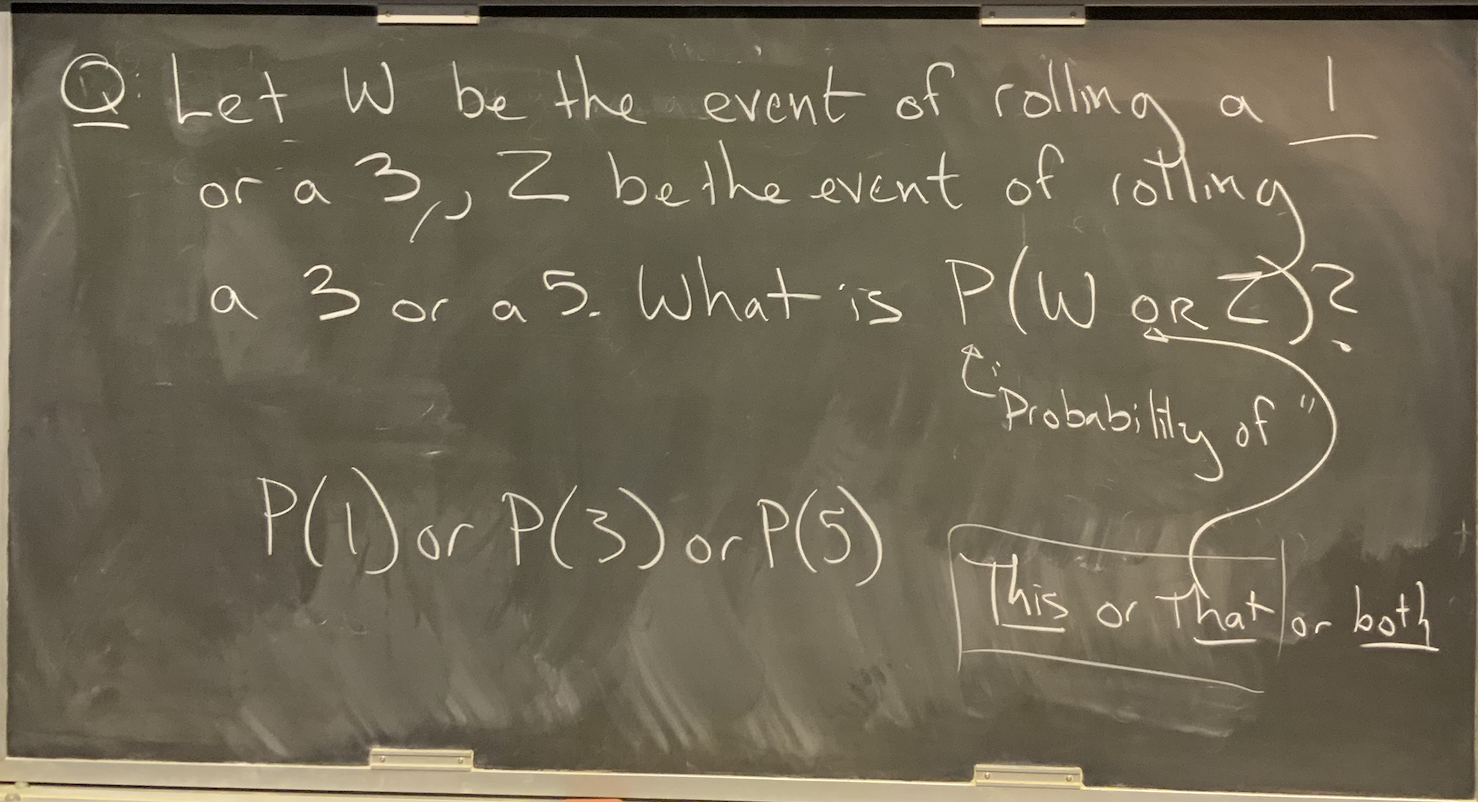 Q: Let W be the event of rolling a 1
or a 3, Z be the event of rolling
a 3 or a 5. What is P(W OR Z)?
"Probability of"
P(1) or P(3) or P(5)
This or That or both